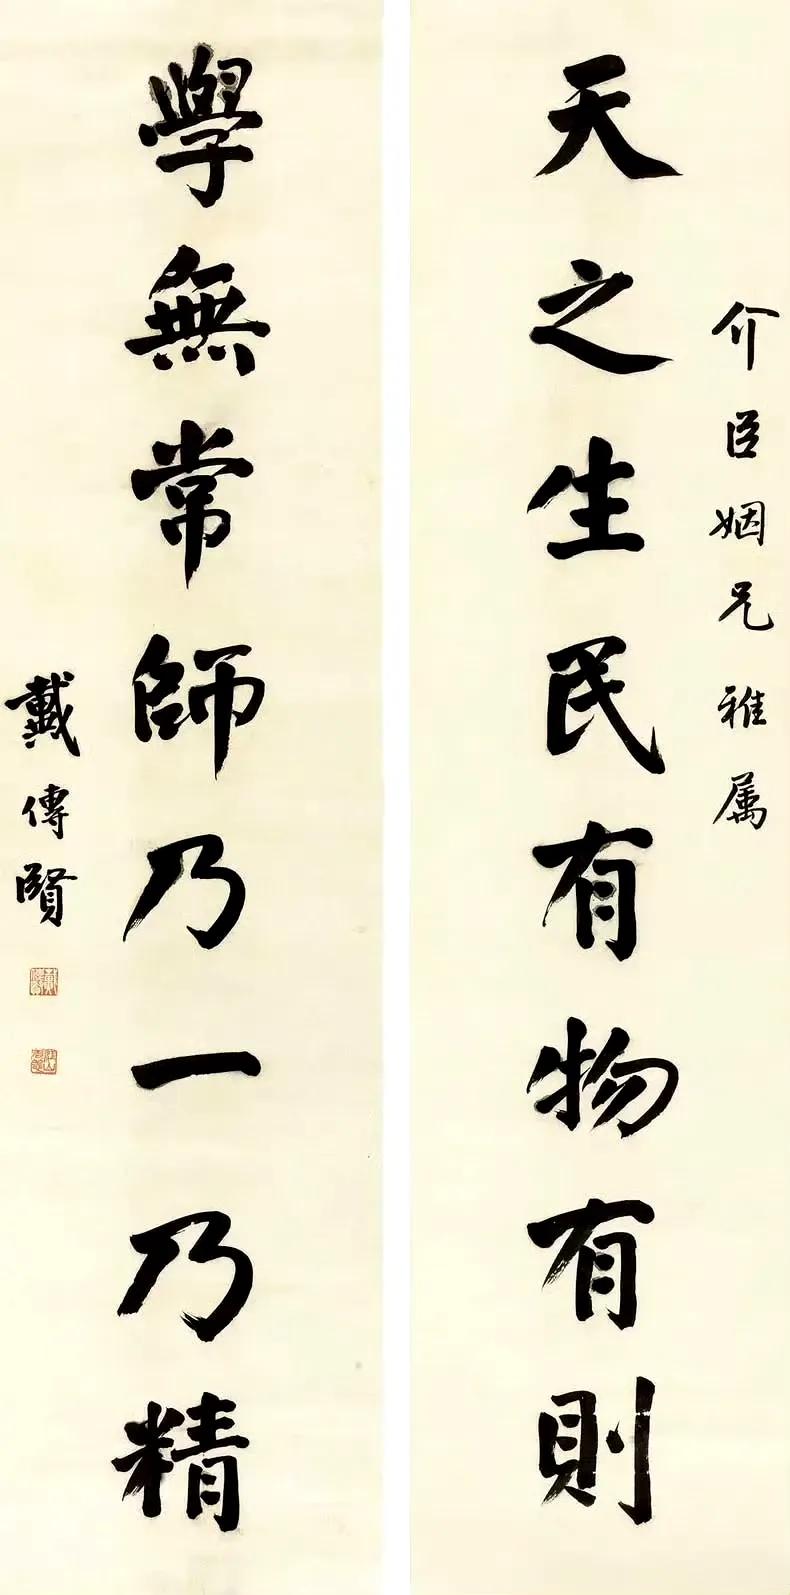 介臣姻兄雅属
天之生民有物有則
學無常師乃一乃精
戴傳賢